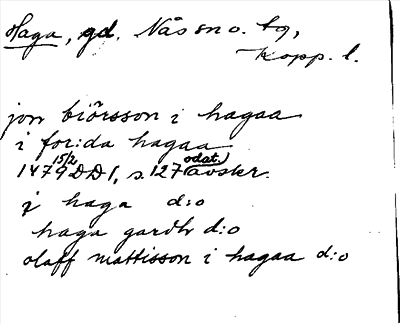 Haga, gd. Nås sn o. tg,
Kopp. l.
jon biörsson i hagaa
i for:da hagaa
1479 15/2 DD 1, s. 127 odat. avskr.
j haga d:o
haga gardh d:o
olaff mattisson i hagaa d:o